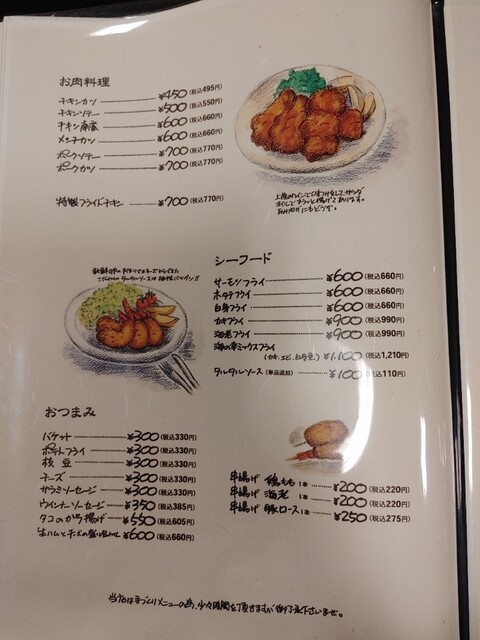 お肉料理
チキンカツ ¥450 (税込495円)
チキンソテー ¥500 (税込550円)
チキン南蛮 ¥600 (税込660円)
メンチカツ ¥600 (税込660円)
ポークソテー ¥700 (税込770円)
ポークカツ ¥700 (税込770円)
特製フライドチキン ¥700 (税込770円)
シーフード
サーモンフライ ¥600 (税込660円)
ホタテフライ ¥600 (税込660円)
白身フライ ¥600 (税込660円)
カキフライ ¥900 (税込990円)
海老フライ ¥900 (税込990円)
海の幸ミックスフライ
(カキ、エビ、白身魚) ¥1,100 (税込1,210円)
タルタルソース (単品追加) ¥100 (税込110円)
おつまみ
バケット ¥300 (税込330円)
ポテトフライ ¥300 (税込330円)
枝豆 ¥300 (税込330円)
チーズ ¥300 (税込330円)
サラミソーセージ ¥300 (税込330円)
ウインナーソーセージ ¥350 (税込385円)
タコのから揚げ ¥550 (税込605円)
生ハムとチーズの盛り合わせ ¥600 (税込660円)
串揚げ 鶏もも 1本 ¥200 (税込220円)
串揚げ 海老 1本 ¥200 (税込220円)
串揚げ 豚ロース 1本 ¥250 (税込275円)
当店は手づくりメニューの為、少々時間を頂きますが御了承下さいませ。